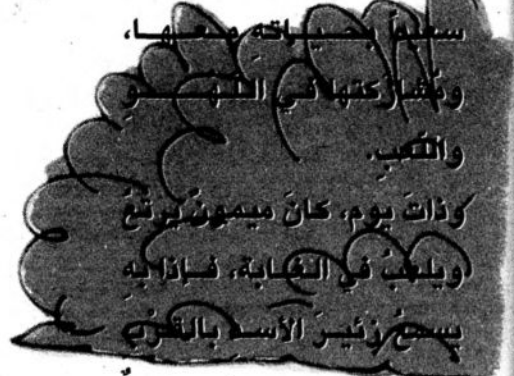 سعيداً بحياتهِ معها،
ومُشاركتها في اللَّهوِ
واللَّعبِ.
وذاتَ يومٍ، كانَ ميمونٌ يرتعُ
ويلعبُ في الغابة، فإذا بهِ
يسمعُ زئيرَ الأسدِ بالقُرْبِ